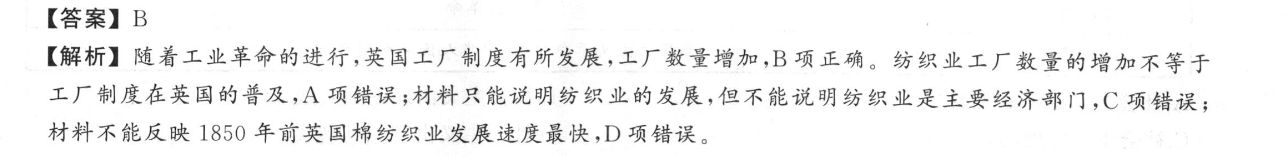 【答案】B
【解析】随着工业革命的进行,英国工厂制度有所发展,工厂数量增加,B项正确。纺织业工厂数量的增加不等于
工厂制度在英国的普及,A项错误;材料只能说明纺织业的发展,但不能说明纺织业是主要经济部门,C项错误;
材料不能反映1850年前英国棉纺织业发展速度最快,D项错误。